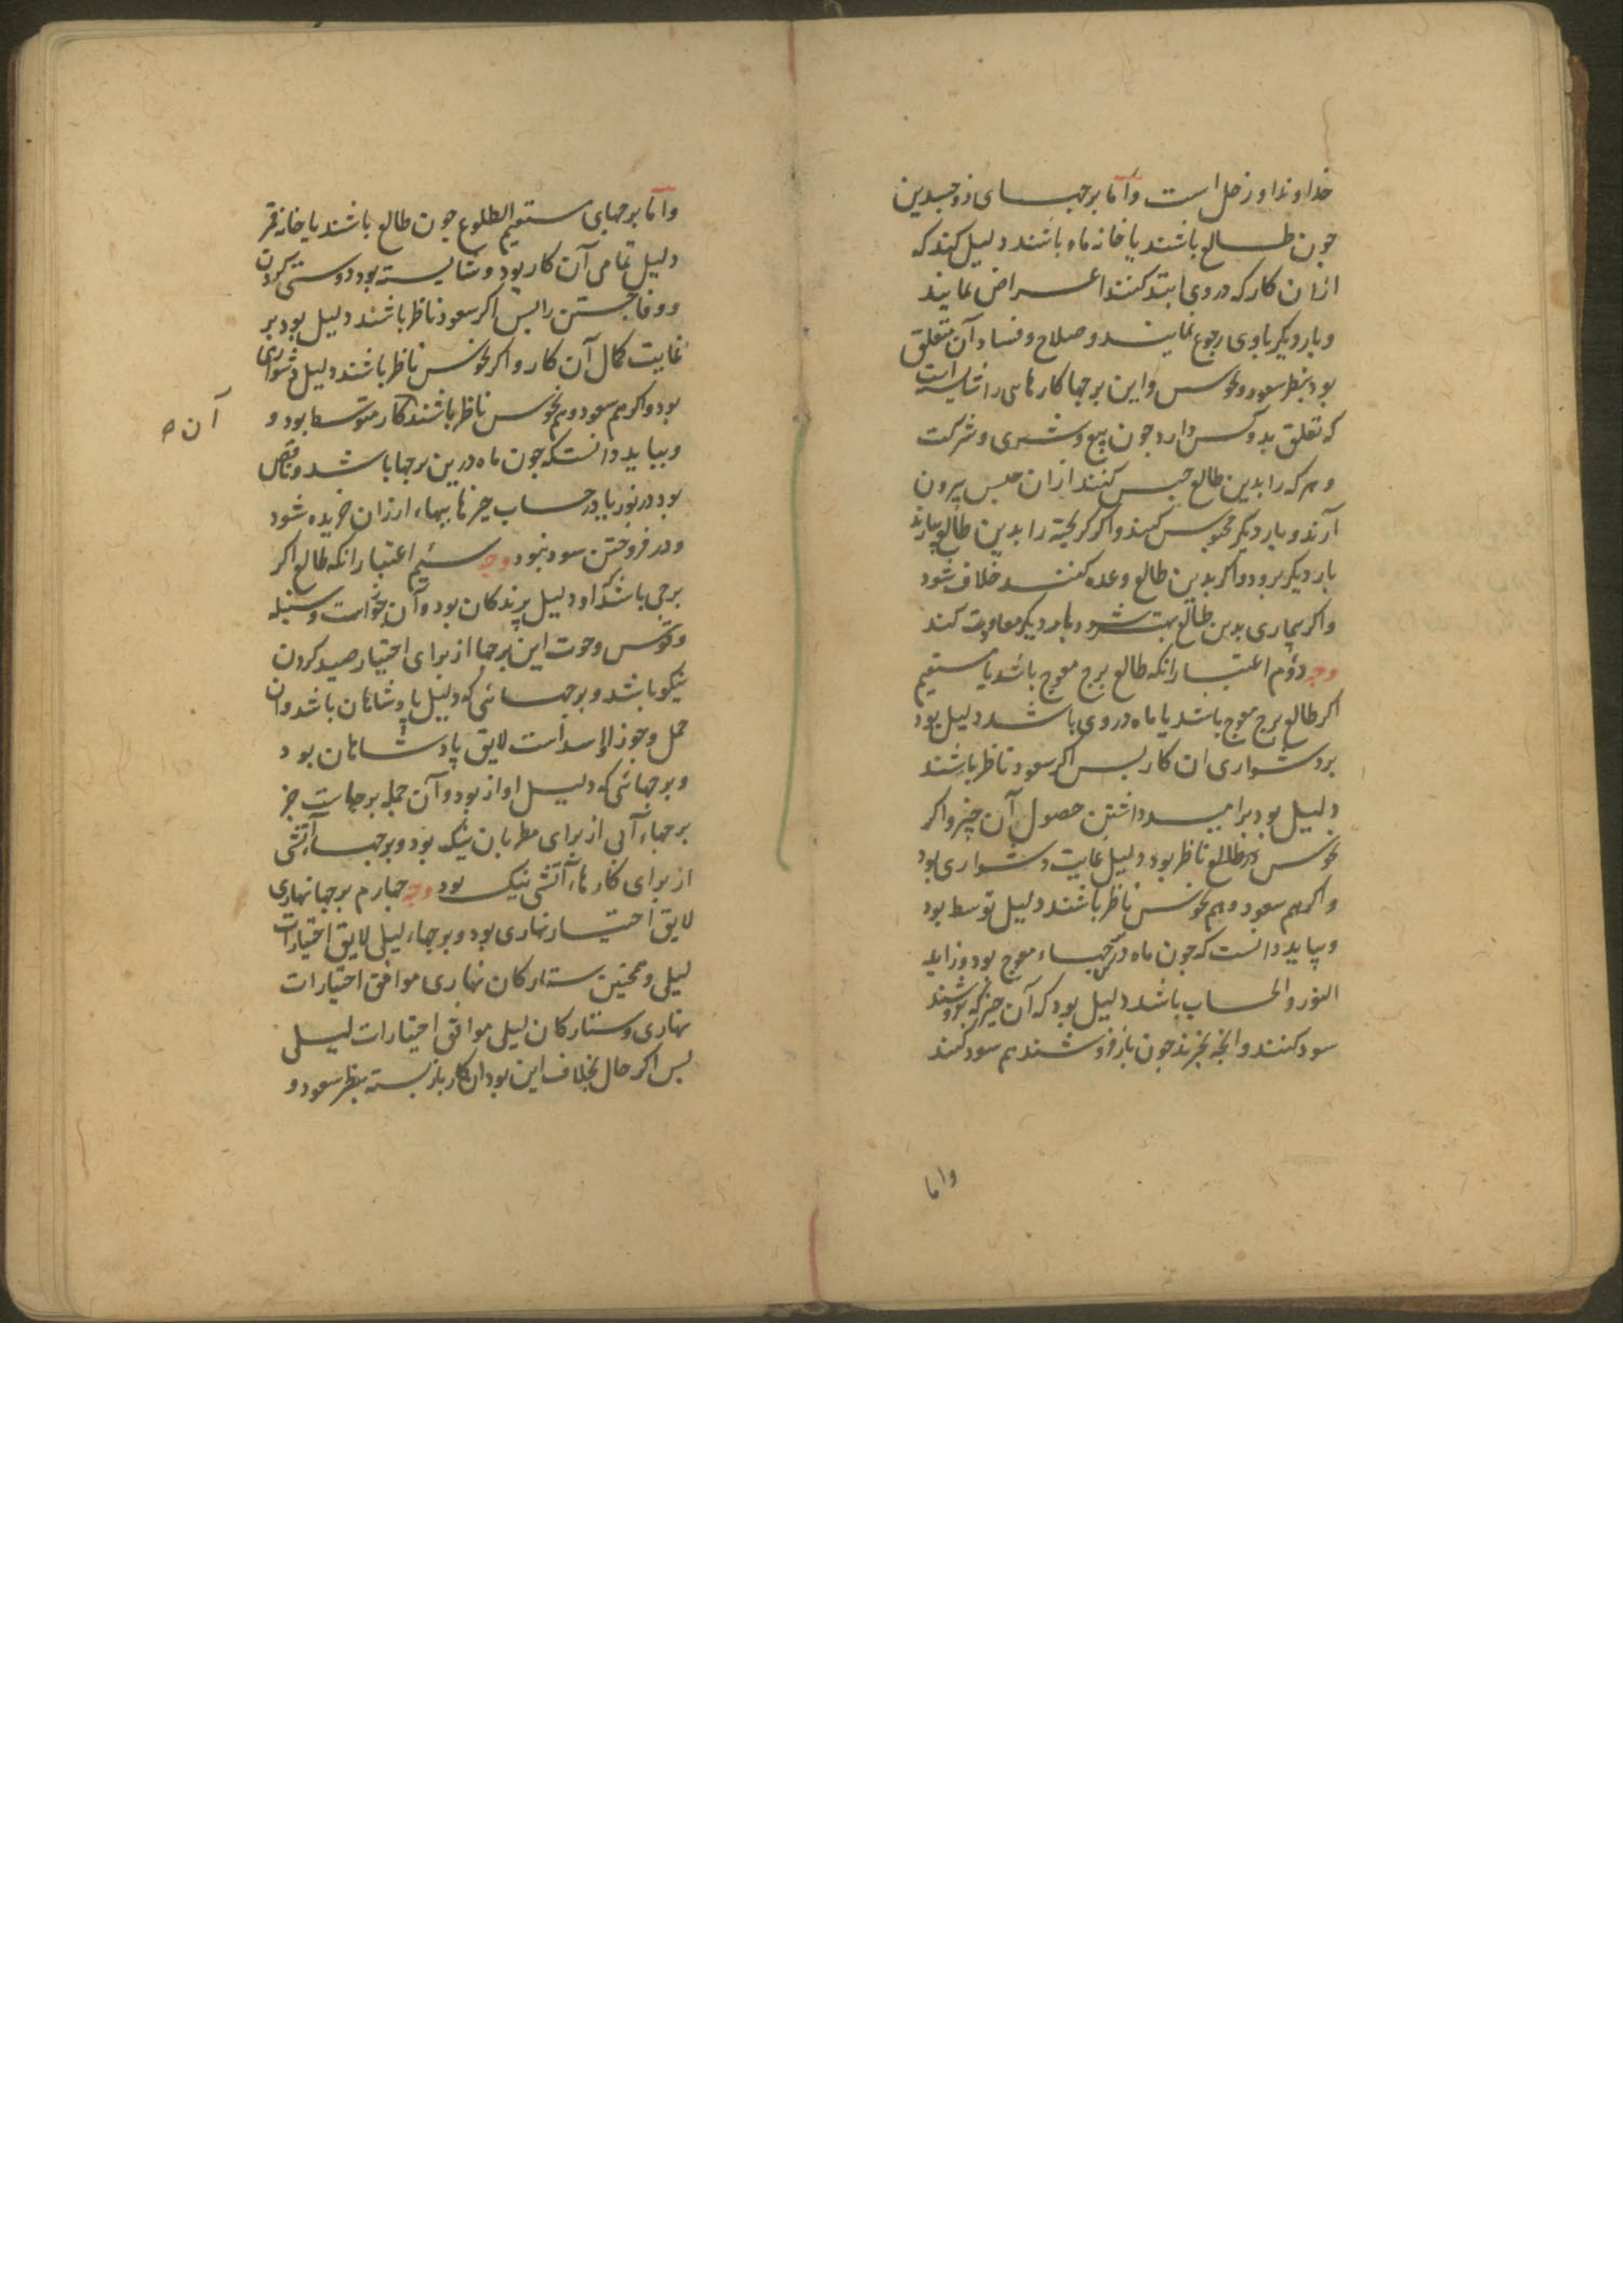 خداوند او زحل است و اما برجهای ذوجسدین
جون طالع باشند یا خانه ماه باشند دلیل کند که
ازان کار که در وی ابتد کنند اعراض نمایند
و بار دیکر باوی رجوع نمایند و صلاح و فساد آن متعلق
بود بنظر سعود و نحوس و این برجها کارهایی را شایسته است
که تعلق بدو کس دارد جون بیع و شری و شرکت
و هر که را بدین طالع حبس کنند ازان حبس بیرون
آرند و بار دیکر محبوس کنند و اکر کریخته را بدین طالع بیارند
بار دیکر برود و اکر بدین طالع وعده کنند خلاف شود
و اکر بیماری بدین طالع بهتر شود بار دیکر معاودت کند
وجه دوم اعتبار انکه طالع برج معوج باشد یا مستقیم
اکر طالع برج معوج باشد یا ماه در وی باشد دلیل بود
بر دشواری ان کار بس اکر سعود ناظر باشند
دلیل بود بر امید داشتن حصول آن چیز و اکر
نحوس در طالع ناظر بود دلیل غایت دشواری بود
و اکر هم سعود و هم نحوس ناظر باشند دلیل توسط بود
و بباید دانست که جون ماه در برجهاء معوج بود و زاید
النور و الحساب باشد دلیل بود که آن جیز که بفروشند
سود کنند و انجه بخرند جون باز فروشند هم سود کنند
واما
و اما برجهای مستقیم الطلوع جون طالع باشند یا خانه قمر
دلیل تمامی آن کار بود و شایسته بود دوستی کردن
و وفا جستن را بس اکر سعود ناظر باشند دلیل بود بر
غایت کمال آن کار و اکر نحوس ناظر باشند دلیل دشواری
بود و اکر هم سعود و هم نحوس ناظر باشند کار متوسط بود و
آن ه
و بباید دانست که جون ماه درین برجها باشد و ناقص
بود در نور یا در حساب جیزها ببهاء ارزان خریده شود
و در فروختن سود نبود وجه سیم اعتبار انکه طالع اکر
برجی باشد که او دلیل پرندکان بود و آن جوزاست و سنبله
و قوس و حوت این برجها از برای اختیار صید کردن
نیکو باشد و برجهائی که دلیل پادشاهان باشد و ان
حمل و جوزا و اسد است لایق پادشاهان بود
و برجهائی که دلیل اواز بود و آن جمله برجهاست جز
برجهاء آبی از برای مطربان نیک بود و برجهاء آتشی
از برای کارهاء آتشی نیک بود وجه جهارم برجها نهاری
لایق اختیار نهاری بود و برجهاء لیلی لایق اختیارات
لیلی و همجنین ستارکان نهاری موافق اختیارات
نهاری و ستارکان لیلی موافق اختیارات لیلی
بس اکر حال بخلاف این بود ان کار باز بسته بنظر سعود و